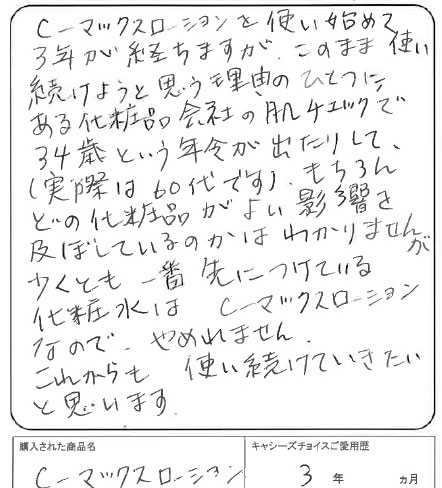 C-マックスローションを使い始めて
3年が経ちますが、このまま使い
続けようと思う理由のひとつに
ある化粧品会社の肌チェックで
34歳という年令が出たりして、
(実際は60代です)、もちろん
どの化粧品がよい影響を
及ぼしているのかはわかりませんが
少くとも一番先につけている
化粧水は C-マックスローション
なので、やめれません。
これからも 使い続けていきたい
と思います。
購入された商品名 キャシーズチョイスご愛用歴
C-マックスローション 3 年 ヵ月